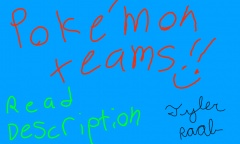 Pokémon
teams!!
Read
Description
Tyler
Raab